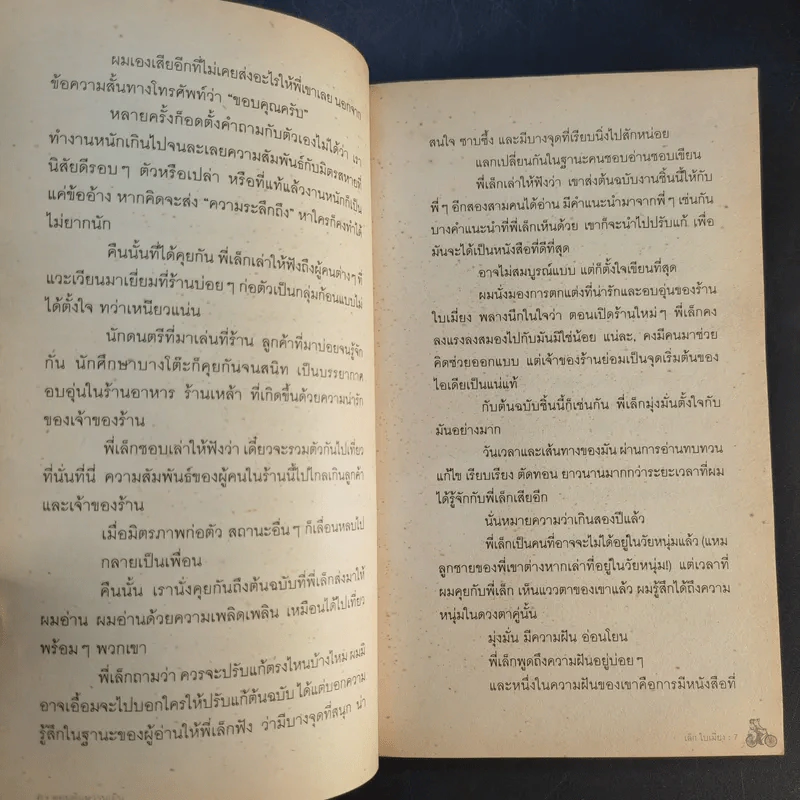 ผมเองเสียอีกที่ไม่เคยส่งอะไรให้พี่เขาเลย นอกจาก
ข้อความสั้นทางโทรศัพท์ว่า "ขอบคุณครับ"
หลายครั้งก็อดตั้งคำถามกับตัวเองไม่ได้ว่า เรา
ทำงานหนักเกินไปจนละเลยความสัมพันธ์กับมิตรสหายที่
นิสัยดีรอบๆ ตัวหรือเปล่า หรือที่แท้แล้วงานหนักก็เป็น
แค่ข้ออ้าง หากคิดจะส่ง "ความระลึกถึง" หาใครก็คงทำได้
ไม่ยากนัก
คืนนั้นที่ได้คุยกัน พี่เล็กเล่าให้ฟังถึงผู้คนต่างๆ ที่
แวะเวียนมาเยี่ยมที่ร้านบ่อยๆ ก่อตัวเป็นกลุ่มก้อนแบบไม่
ได้ตั้งใจ ทว่าเหนียวแน่น
นักดนตรีที่มาเล่นที่ร้าน ลูกค้าที่มาบ่อยจนรู้จัก
กัน นักศึกษาบางโต๊ะก็คุยกันจนสนิท เป็นบรรยากาศ
อบอุ่นในร้านอาหาร ร้านเหล้า ที่เกิดขึ้นด้วยความน่ารัก
ของเจ้าของร้าน
พี่เล็กชอบเล่าให้ฟังว่า เดี๋ยวจะรวมตัวกันไปเที่ยว
ที่นั่นที่นี่ ความสัมพันธ์ของผู้คนในร้านนี้ไปไกลเกินลูกค้า
และเจ้าของร้าน
เมื่อมิตรภาพก่อตัว สถานะอื่นๆ ก็เลื่อนหลบไป
กลายเป็นเพื่อน
คืนนั้น เรานั่งคุยกันถึงต้นฉบับที่พี่เล็กส่งมาให้
ผมอ่าน ผมอ่านด้วยความเพลิดเพลิน เหมือนได้ไปเที่ยว
พร้อมๆ พวกเขา
พี่เล็กถามว่า ควรจะปรับแก้ตรงไหนบ้างไหม ผมมิ
อาจเอื้อมจะไปบอกใครให้ปรับแก้ต้นฉบับ ได้แต่บอกความ
รู้สึกในฐานะของผู้อ่านให้พี่เล็กฟัง ว่ามีบางจุดที่สนุก น่า
สนใจ ซาบซึ้ง และมีบางจุดที่เรียบนิ่งไปสักหน่อย
แลกเปลี่ยนกันในฐานะคนชอบอ่านชอบเขียน
พี่เล็กเล่าให้ฟังว่า เขาส่งต้นฉบับงานชิ้นนี้ให้กับ
พี่ๆ อีกสองสามคนได้อ่าน มีคำแนะนำมาจากพี่ๆ เช่นกัน
บางคำแนะนำที่พี่เล็กเห็นด้วย เขาก็จะนำไปปรับแก้ เพื่อ
มันจะได้เป็นหนังสือที่ดีที่สุด
อาจไม่สมบูรณ์แบบ แต่ก็ตั้งใจเขียนที่สุด
ผมนั่งมองการตกแต่งที่น่ารักและอบอุ่นของร้าน
ใบเมี่ยง พลางนึกในใจว่า ตอนเปิดร้านใหม่ๆ พี่เล็กคง
ลงแรงลงสมองไปกับมันมิใช่น้อย แน่ละ, คงมีคนมาช่วย
คิดช่วยออกแบบ แต่เจ้าของร้านย่อมเป็นจุดเริ่มต้นของ
ไอเดียเป็นแน่แท้
กับต้นฉบับชิ้นนี้ก็เช่นกัน พี่เล็กมุ่งมั่นตั้งใจกับ
มันอย่างมาก
วันเวลาและเส้นทางของมัน ผ่านการอ่านทบทวน
แก้ไข เรียบเรียง ตัดทอน ยาวนานมากกว่าระยะเวลาที่ผม
ได้รู้จักกับพี่เล็กเสียอีก
นั่นหมายความว่าเกินสองปีแล้ว
พี่เล็กเป็นคนที่อาจจะไม่ได้อยู่ในวัยหนุ่มแล้ว (แหม
ลูกชายของพี่เขาต่างหากเล่าที่อยู่ในวัยหนุ่ม!) แต่เวลาที่
ผมคุยกับพี่เล็ก เห็นแววตาของเขาแล้ว ผมรู้สึกได้ถึงความ
หนุ่มในดวงตาคู่นั้น
มุ่งมั่น มีความฝัน อ่อนโยน
พี่เล็กพูดถึงความฝันอยู่บ่อยๆ
และหนึ่งในความฝันของเขาคือการมีหนังสือที่
เล็ก ใบเมี่ยง : 7